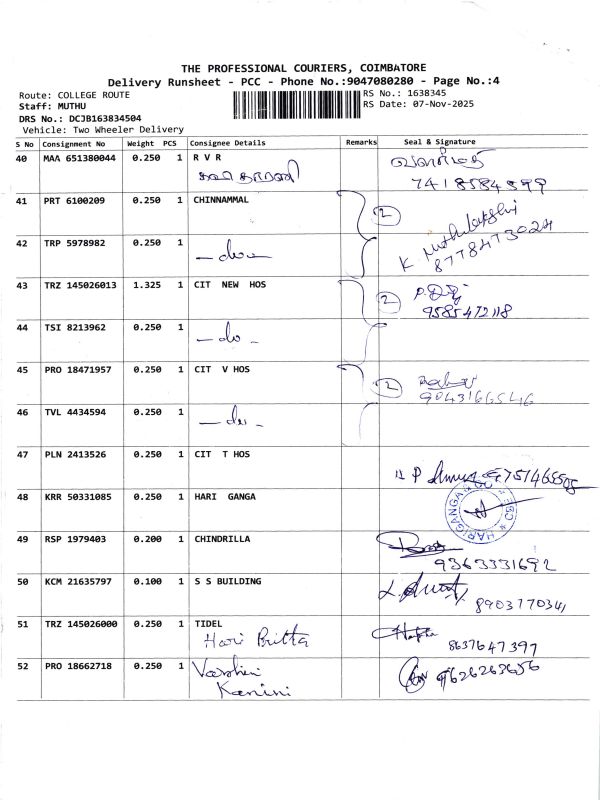 THE PROFESSIONAL COURIERS, COIMBATORE
Delivery Runsheet - PCC - Phone No.:9047080280 - Page No.:4
Route: COLLEGE ROUTE
Staff: MUTHU
DRS No.: DCJB163834504
Vehicle: Two Wheeler Delivery
RS No.: 1638345
RS Date: 07-Nov-2025
S No Consignment No Weight PCS Consignee Details Remarks Seal & Signature
40 MAA 651380044 0.250 1 R V R
7418584899
41 PRT 6100209 0.250 1 CHINNAMMAL 2
K Muthulakshi
8778473024
42 TRP 5978982 0.250 1 — do —
43 TRZ 145026013 1.325 1 CIT NEW HOS 2
9585472118
44 TSI 8213962 0.250 1 — do —
45 PRO 18471957 0.250 1 CIT V HOS 2
9043166546
46 TVL 4434594 0.250 1 — do —
47 PLN 2413526 0.250 1 CIT T HOS
48 KRR 50331085 0.250 1 HARI GANGA
HARIGANGA
49 RSP 1979403 0.200 1 CHINDRILLA
9363331692
50 KCM 21635797 0.100 1 S S BUILDING
8903770341
51 TRZ 145026000 0.250 1 TIDEL
Hari Britta
8637647397
52 PRO 18662718 0.250 1 Varshini
Kanini
9626263656